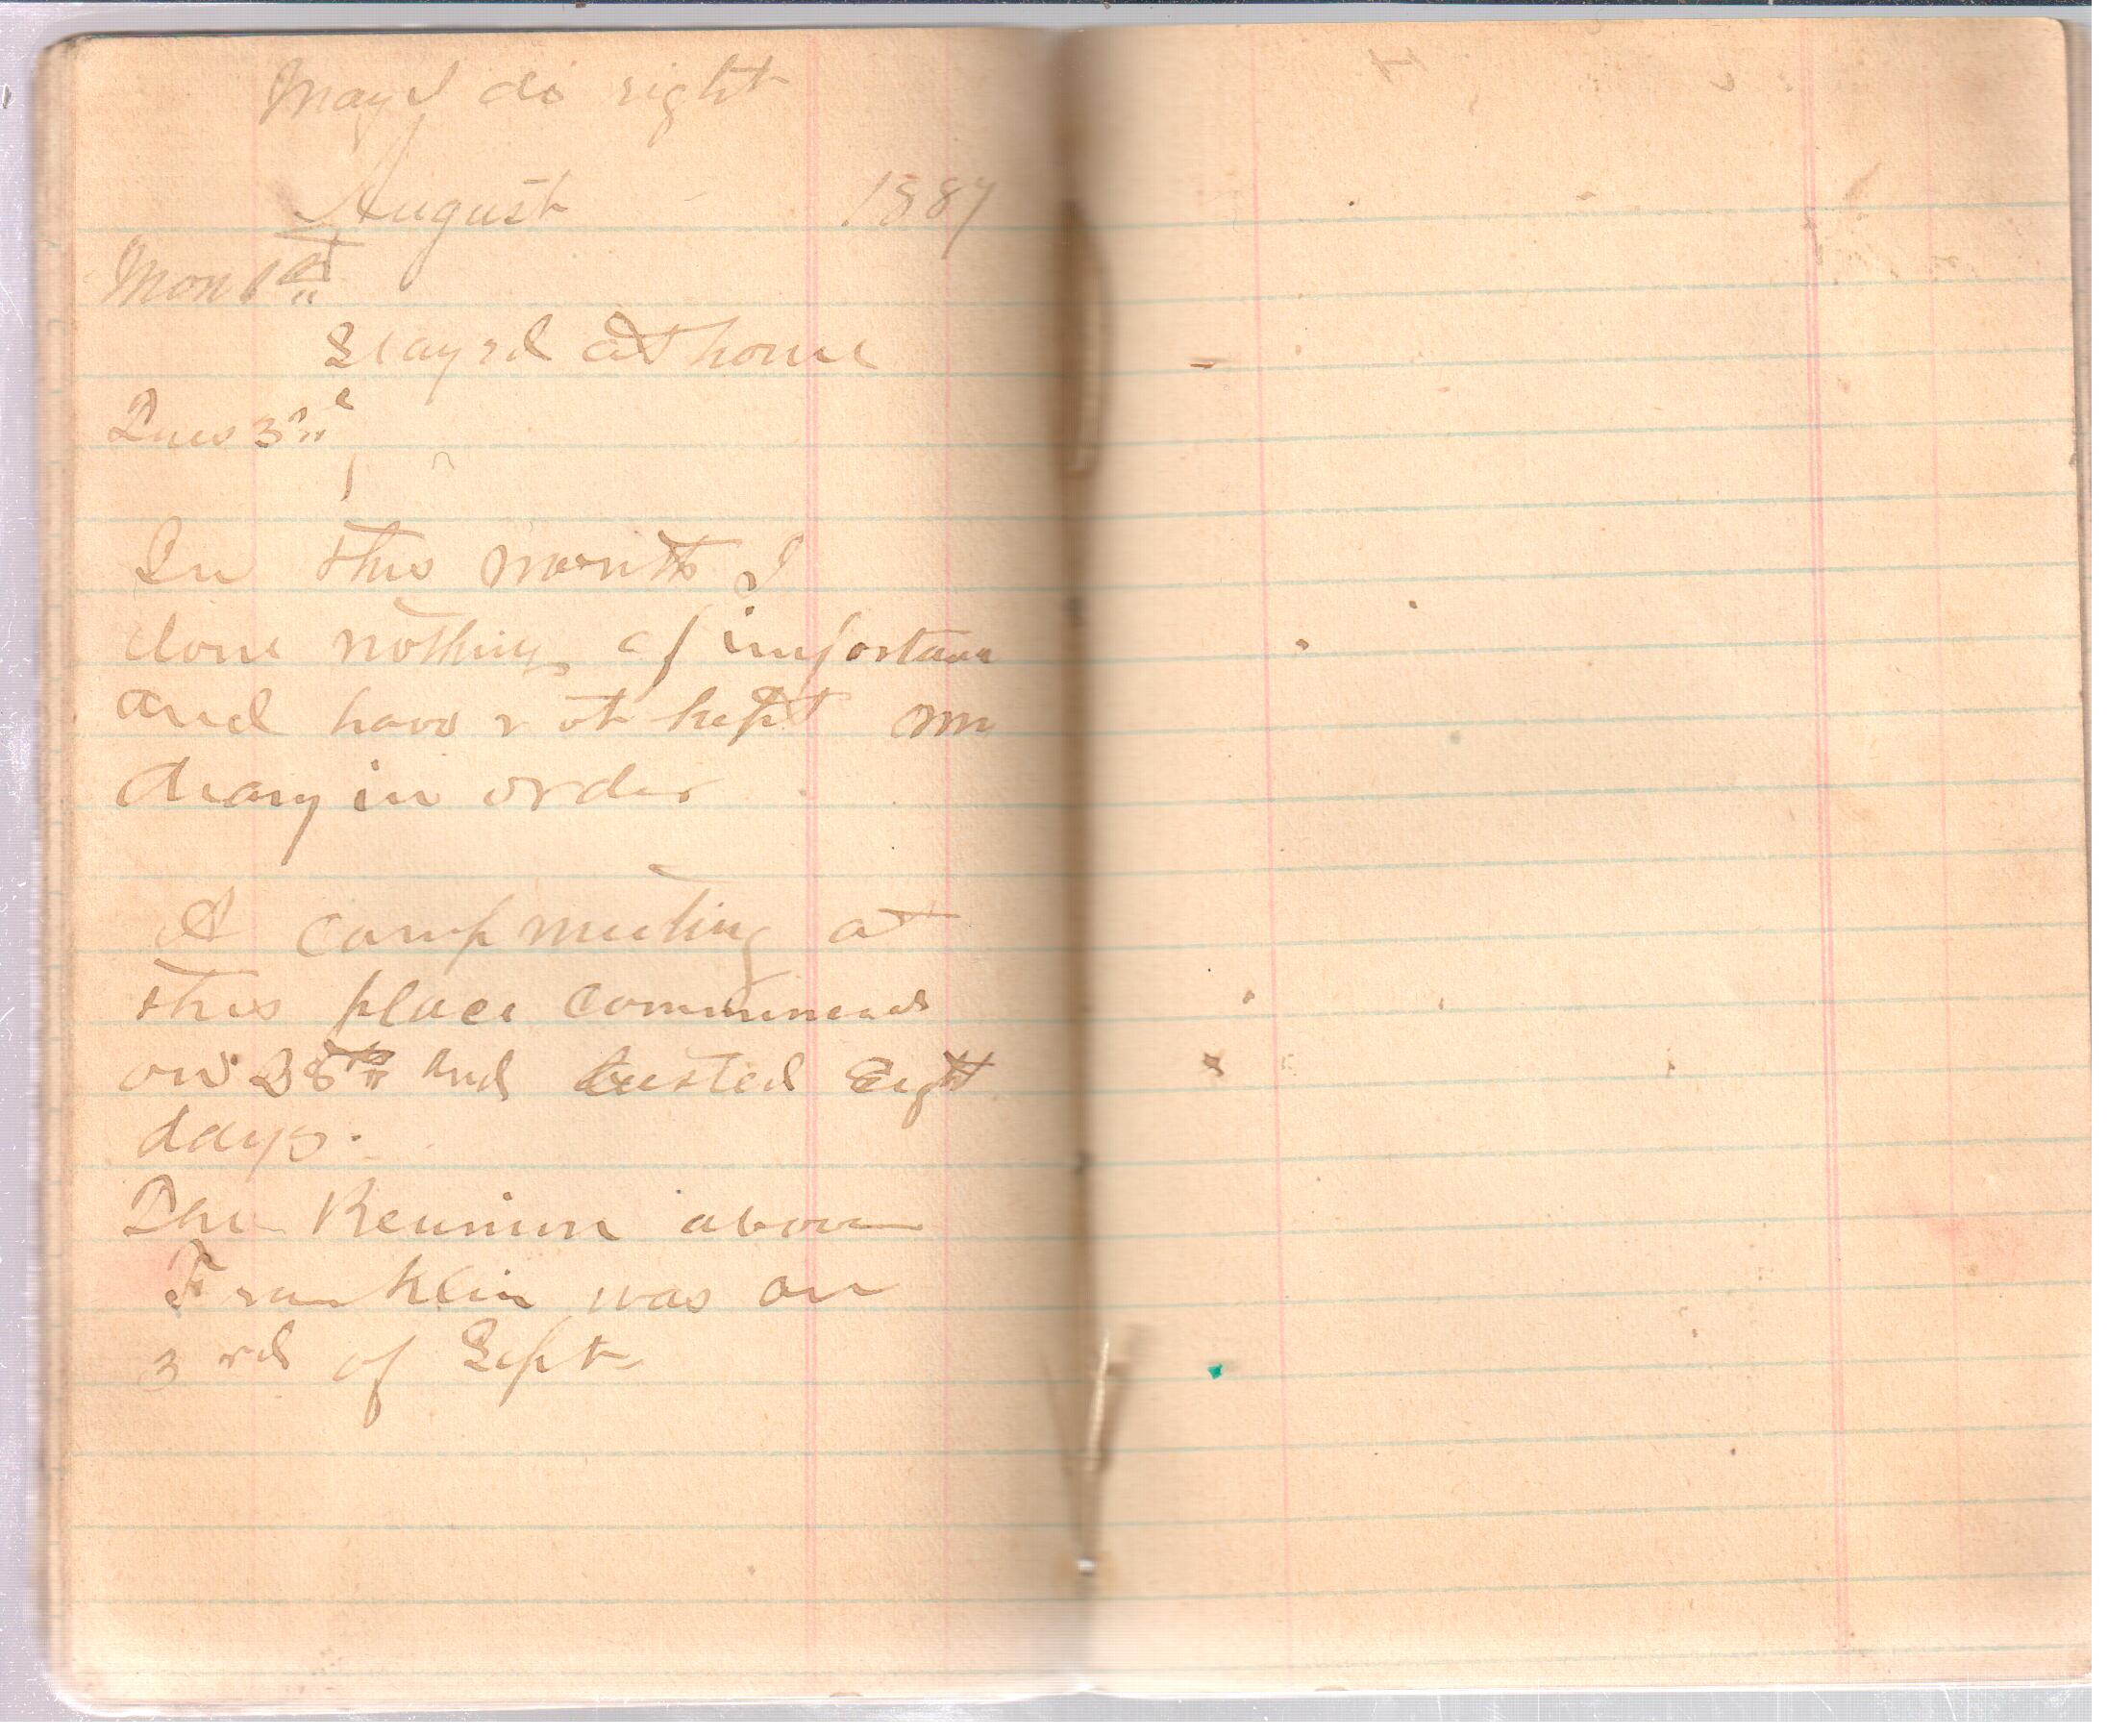 May I do right
August 1887
Mon 1st
Stayed at home
Tues 3rd
In this month I
done nothing of importance
and have not kept my
diary in order
A camp meeting at
this place commenced
on 28th and lasted Eight
days.
The Reunion above
Franklin was on
3rd of Sept